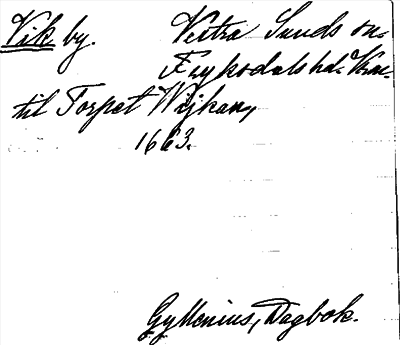 Vik by. Vestra Sunds sn.
Frykodals hd. Krm.
til Torpet Wijkan,
1663.
Gyllenius, Dagbok.